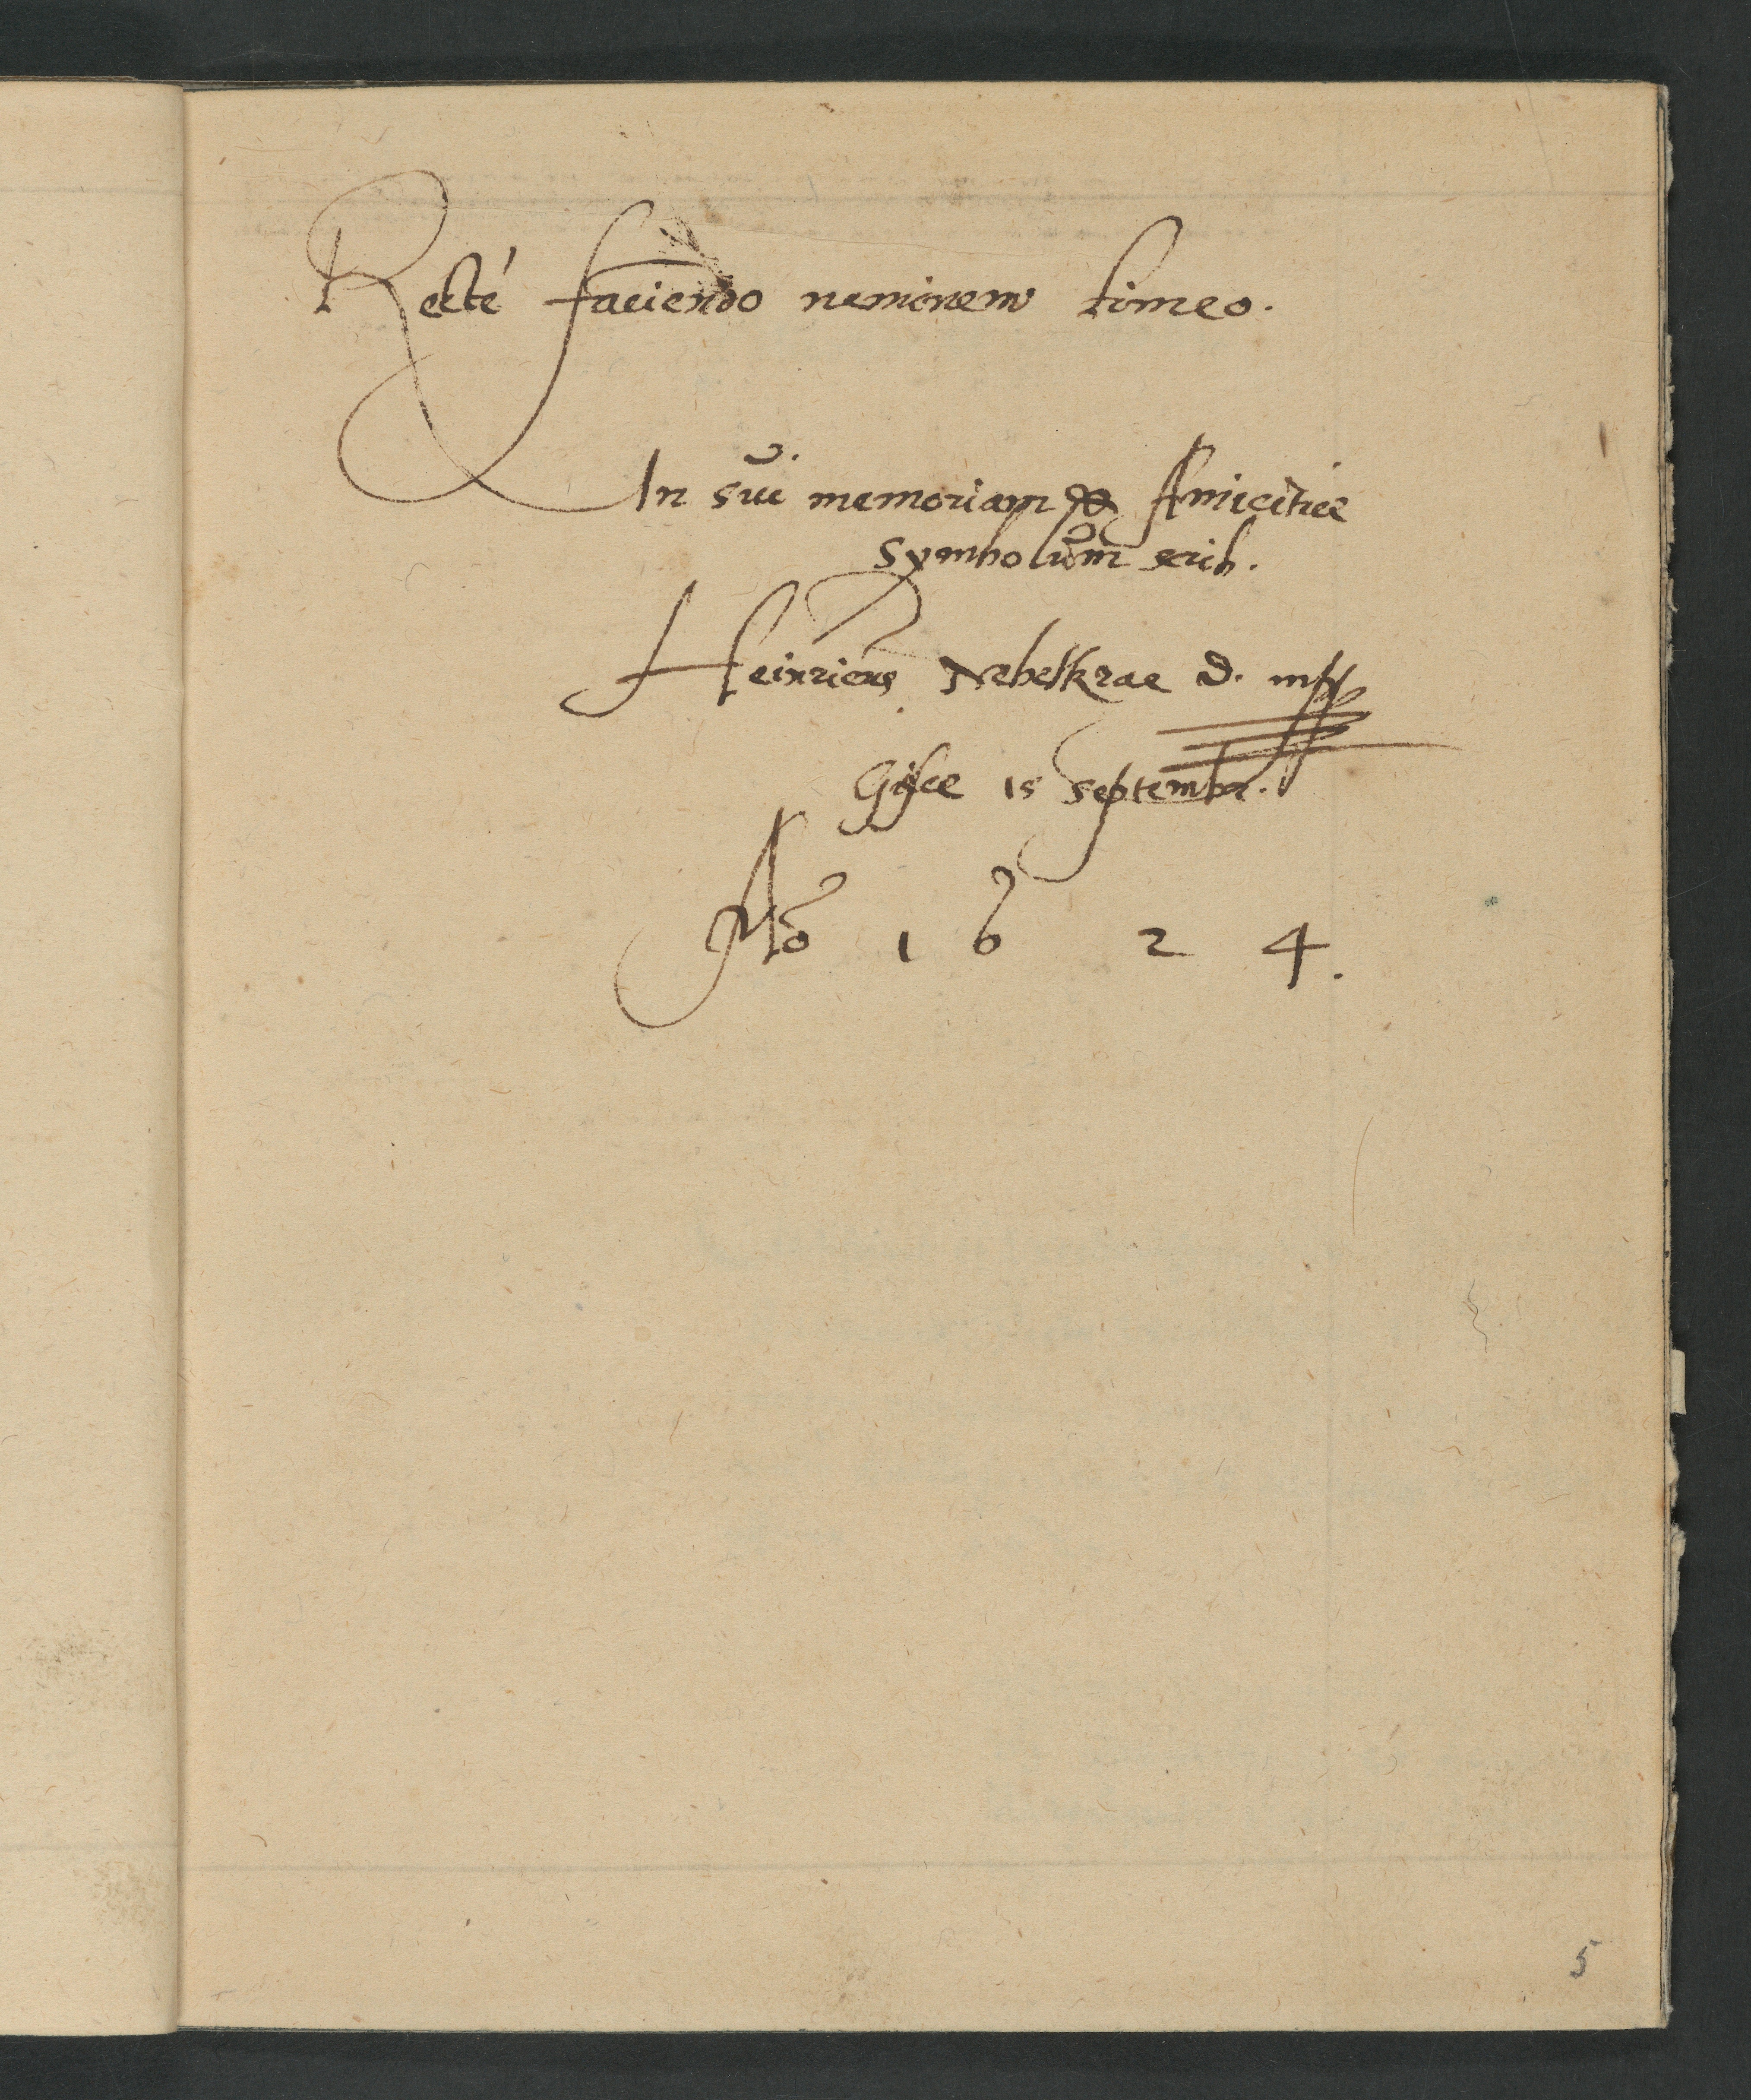 Recté faciendo neminem timeo.
In sui memoriam & Amicitiæ
Symbolum scrib.
Heinricus Nebelkrae D. mpp
15 Septembr.
Aõ 1624.
5